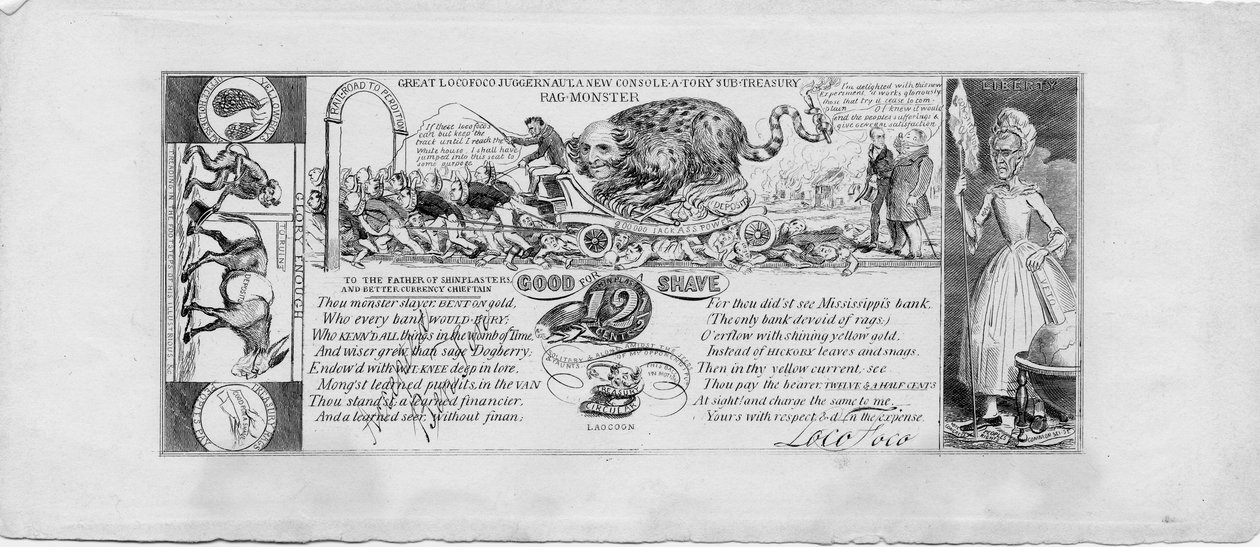 GREAT LOCOFOCO JUGGERNAUT, A NEW CONSOLE-A-TORY SUB-TREASURY
RAG-MONSTER
RAIL-ROAD TO PERDITION
If these locofocos
can but keep the
track until I reach the
White house, I shall have
jumped into this seat to
some purpose
I'm delighted with this new
experiment, it works gloriously
those that try it cease to com-
plain
O! I knew it would
end the peoples sufferings &
give GENERAL satisfaction
DEPOSITS
JACKASS POWER
VETO
LIBERTY
TREADING IN THE FOOTSTEPS OF HIS ILLUSTRIOUS
GLORY ENOUGH
TO RUIN!
TREASURY RAGS
TO THE FATHER OF SHINPLASTERS,
AND BETTER CURRENCY CHIEFTAIN
GOOD FOR A SHAVE
12½
CENTS
Thou monster slayer, BENTON gold,
Who every bank WOULD-BURY;
Who KENN'D ALL things in the womb of Time,
And wiser grew than sage Dogberry;
Endow'd with WIT-KNEE deep in lore,
Mong'st learned pundits, in the VAN
Thou stand'st a learned financier,
And a learned seer, without finan;
SOLITARY & ALONE AMIDST THE JEERS
& TAUNTS
OF MY OPPONENTS
TREASURY
CIRCULAR
LAOCOON
For thou did'st see Mississippi's bank,
(The only bank devoid of rags,)
O'erflow with shining yellow gold,
Instead of HICKORY leaves and snags.
Then in thy yellow current, see
Thou pay the bearer, TWELVE & A HALF CENTS
At sight! and charge the same to me.
Yours with respect, & d__n the expense.
Loco Foco
COMMON SENSE